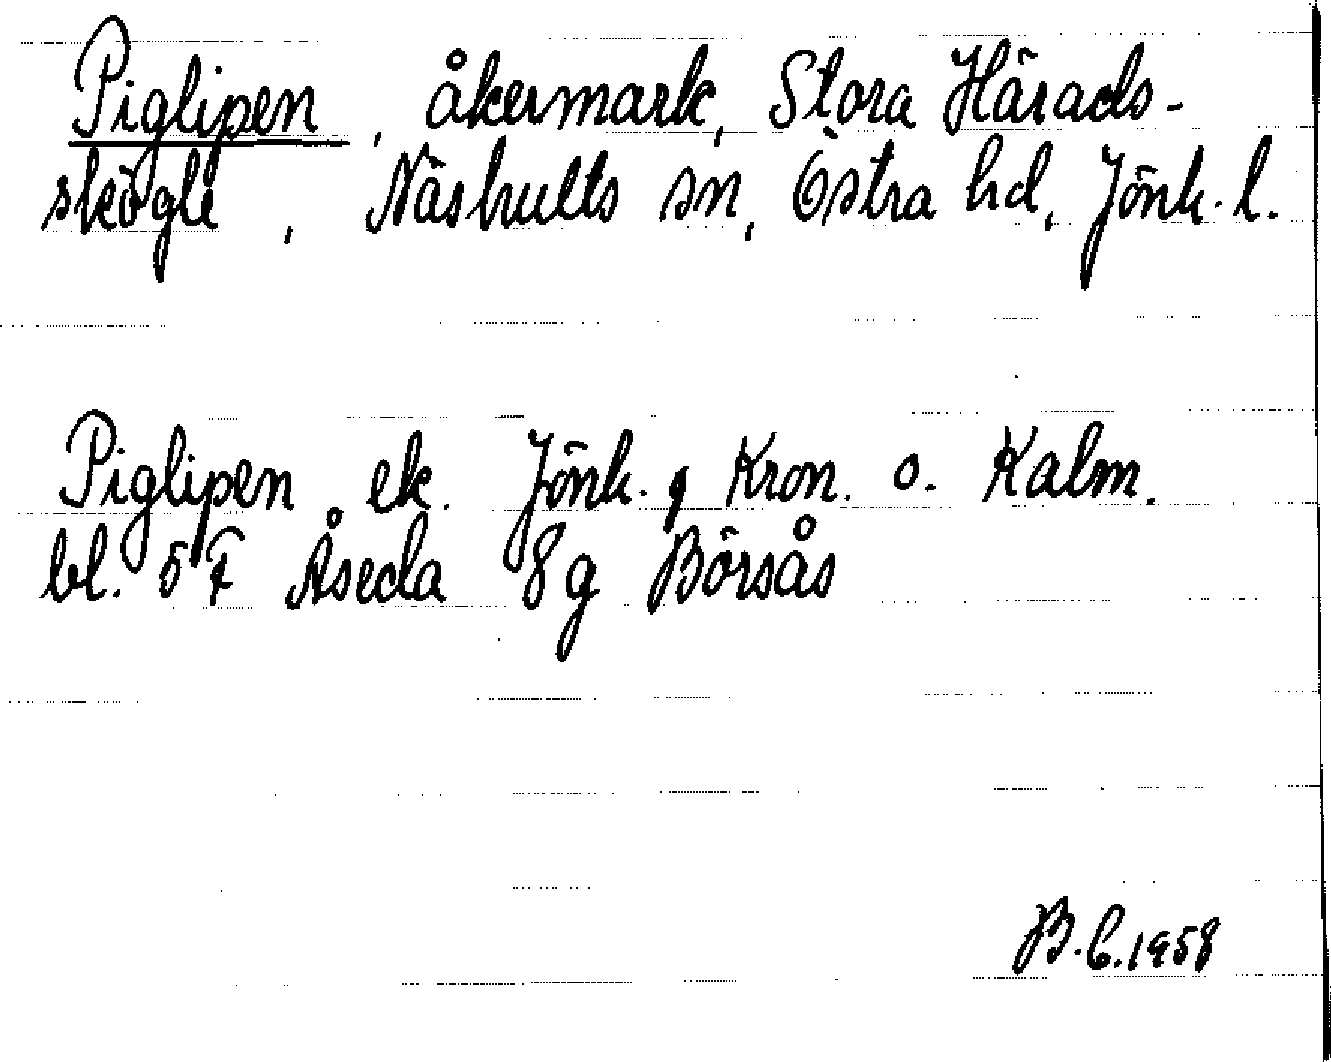 Piglipen, åkermark, Stora Härads-
skögle, Näshults sn, Östra hd, Jönk. l.
Piglipen ek. Jönk., Kron. o. Kalm.
bl. 5 F Åseda 8 g Börsås
B.C.1958